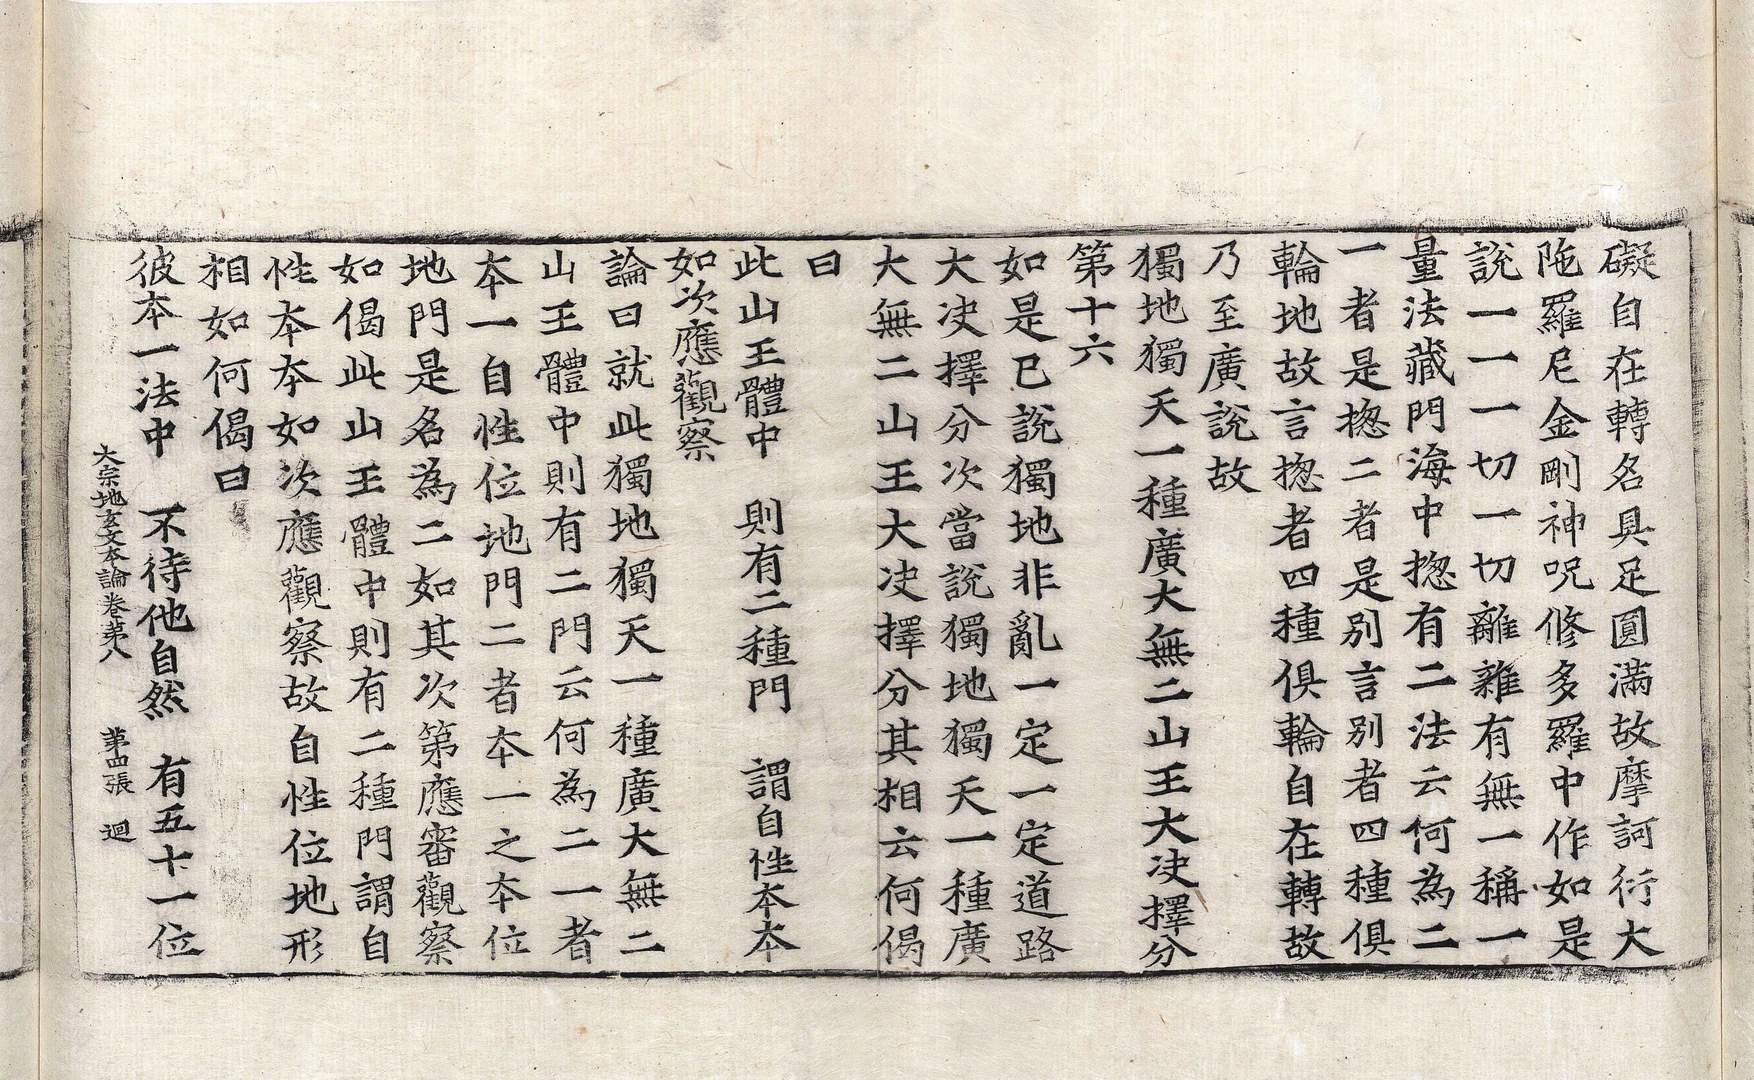 礙自在轉名具足圓滿故摩訶衍大
陁羅尼金剛神呪修多羅中作如是
說一一一切一切離雜有無一稱一
量法藏門海中揔有二法云何為二
一者是揔二者是別言別者四種俱
輪地故言揔者四種俱輪自在轉故
乃至廣說故
獨地獨天一種廣大無二山王大决擇分
第十六
如是已說獨地非亂一定一定道路
大决擇分次當說獨地獨天一種廣
大無二山王大决擇分其相云何偈
曰
此山王體中　則有二種門　謂自性本本
如次應觀察
論曰就此獨地獨天一種廣大無二
山王體中則有二門云何為二一者
本一自性位地門二者本一之本位
地門是名為二如其次第應審觀察
如偈此山王體中則有二種門謂自
性本本如次應觀察故自性位地形
相如何偈曰
彼本一法中　不待他自然　有五十一位
大宗地玄文本論卷第八　第四張　迴